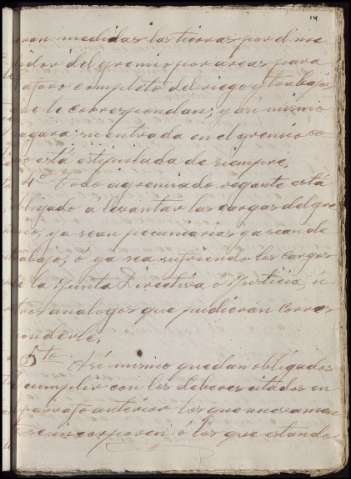 14
ran medidas las tierras por el me
didor del gremio por areas para
aforo completo del riego y trabajos
que le correspondan; y asi mismo
pagará su entrada en el gremio co
mo está estipulada de siempre.
4ª Todo agremiado regante está
obligado á levantar las cargas del gre
mio, ya sean pecuniarias ya sean de
trabajo, ó ya sea sufriendo los cargos
de la Junta Directiva ó Justicia, ú
otros análogos que pudieran corres
ponderle.
5ta Asi mismo quedan obligados
á cumplir con los deberes citados en
el parrafo anterior los que nuevamen
te se incorporen ó los que estando